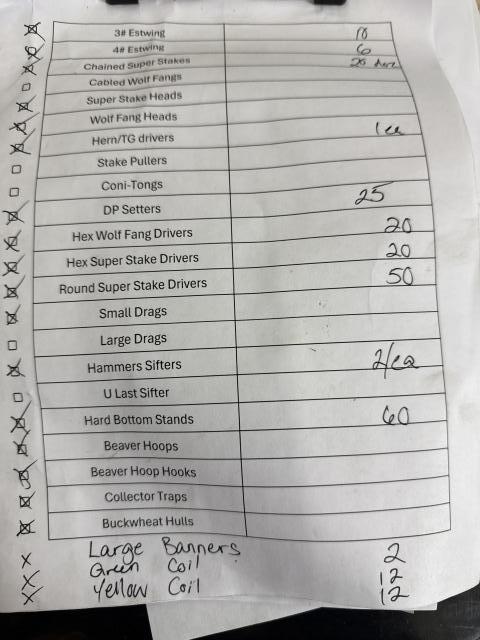 3# Estwing 10
4# Estwing 6
Chained Super Stakes 20 doz
Cabled Wolf Fangs
Super Stake Heads
Wolf Fang Heads
Hern/TG drivers 1 ea
Stake Pullers
Coni-Tongs
DP Setters 25
Hex Wolf Fang Drivers 20
Hex Super Stake Drivers 20
Round Super Stake Drivers 50
Small Drags
Large Drags
Hammers Sifters 2/ea
U Last Sifter
Hard Bottom Stands 60
Beaver Hoops
Beaver Hoop Hooks
Collector Traps
Buckwheat Hulls
Large Banners 2
Green Coil 12
Yellow Coil 12